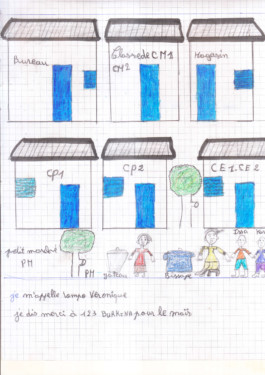 Bureau
Classe de CM1
CM2
Magasin
CP1
CP2
CE1.CE2
petit marché
PM
PM
gâteau
Bissape
Issa
je m'appelle Wempo Véronique
je dis merci à 123 BURKINA pour le maïs